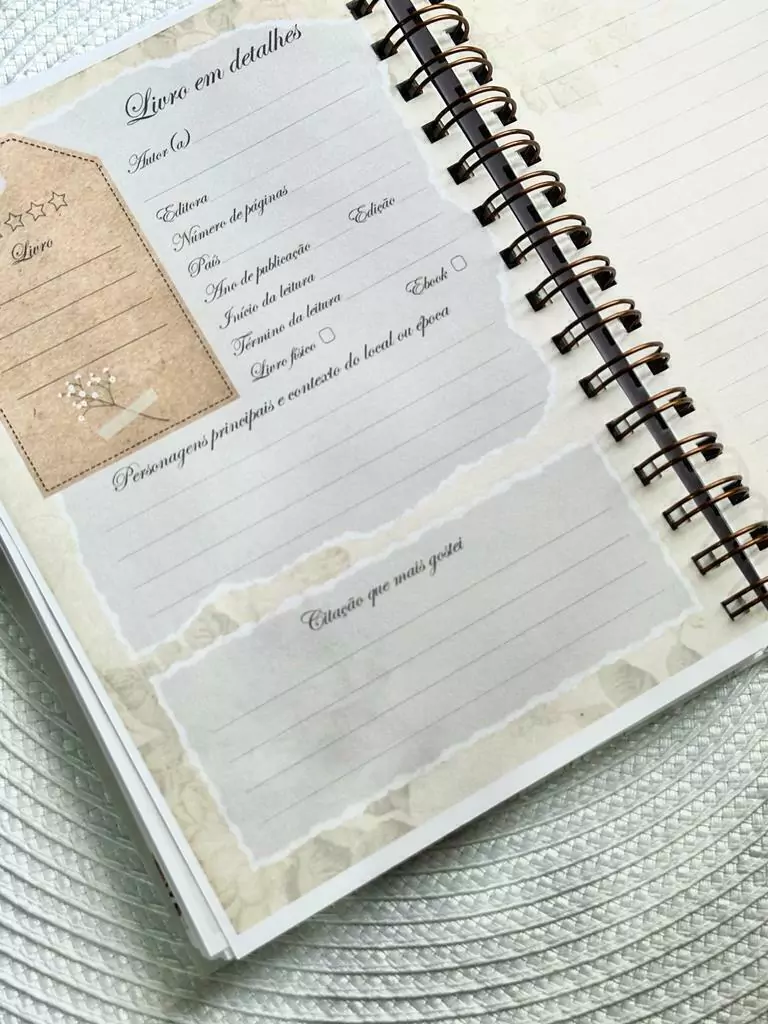 Livro em detalhes
Autor(a)
Editora
Número de páginas
País Edição
Ano de publicação
Início da leitura
Término da leitura
Livro físico Ebook
Personagens principais e contexto do local ou época
Citação que mais gostei
Livro